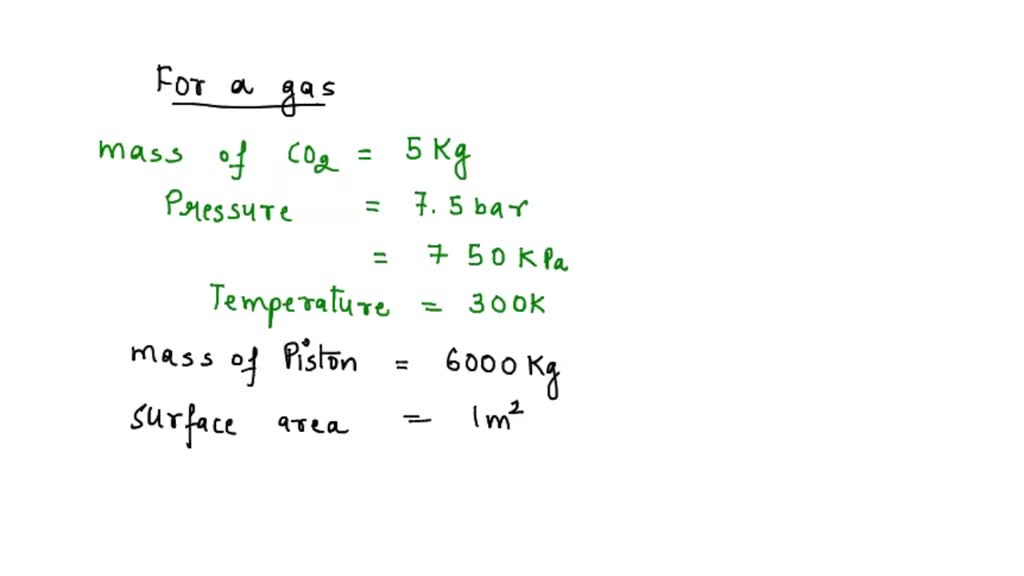 For a gas
mass of CO2 = 5 Kg
Pressure = 7.5 bar
= 750 KPa
Temperature = 300K
mass of Piston = 6000 Kg
surface area = 1m²